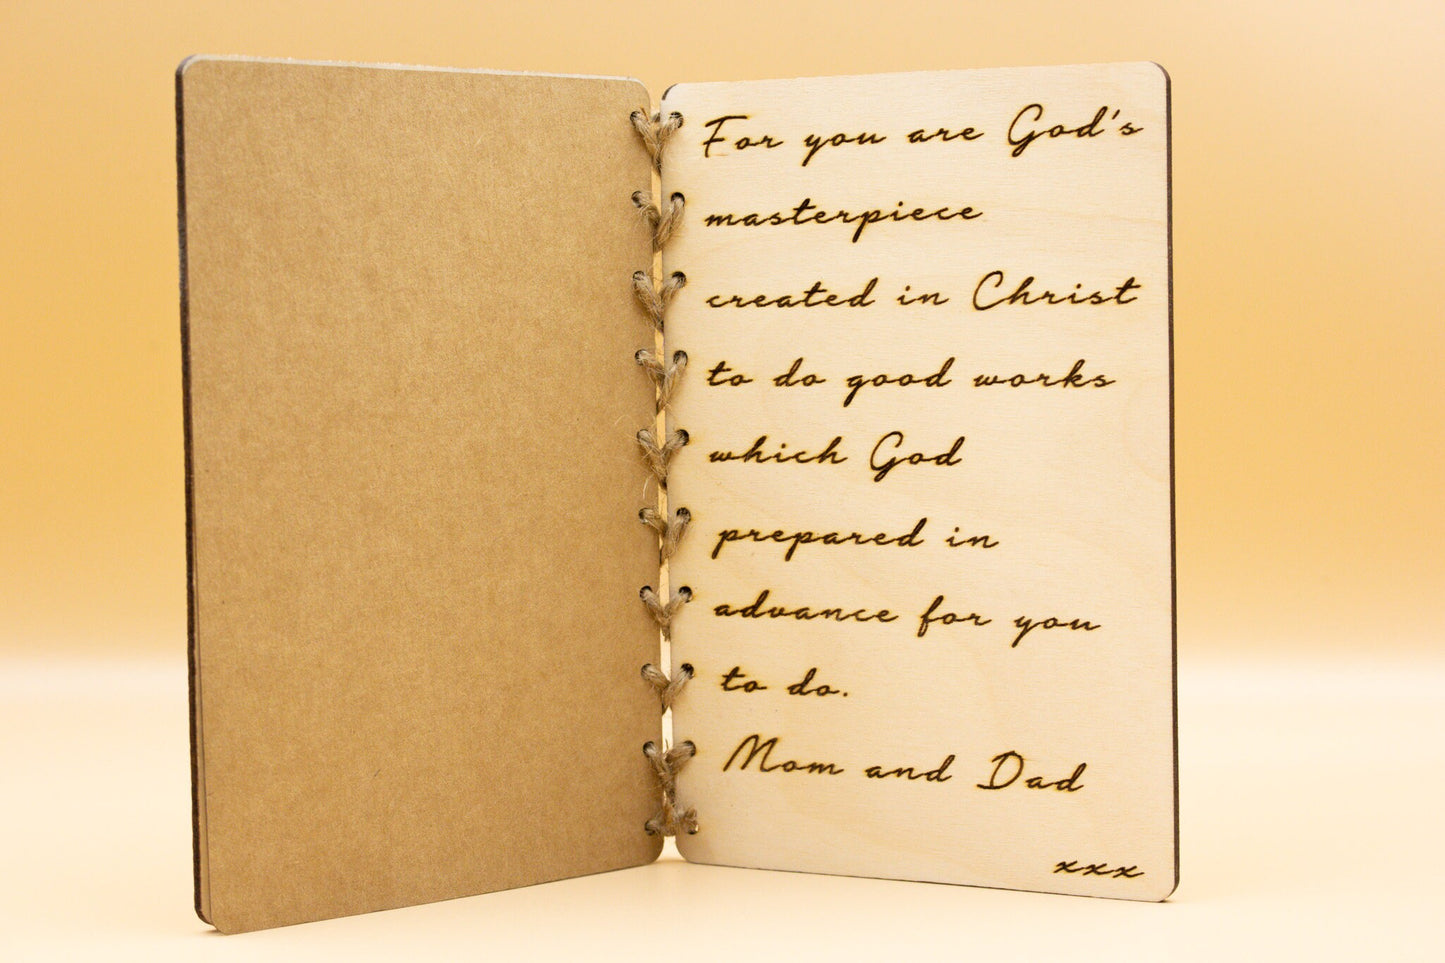 For you are God's
masterpiece
created in Christ
to do good works
which God
prepared in
advance for you
to do.
Mom and Dad
xxx